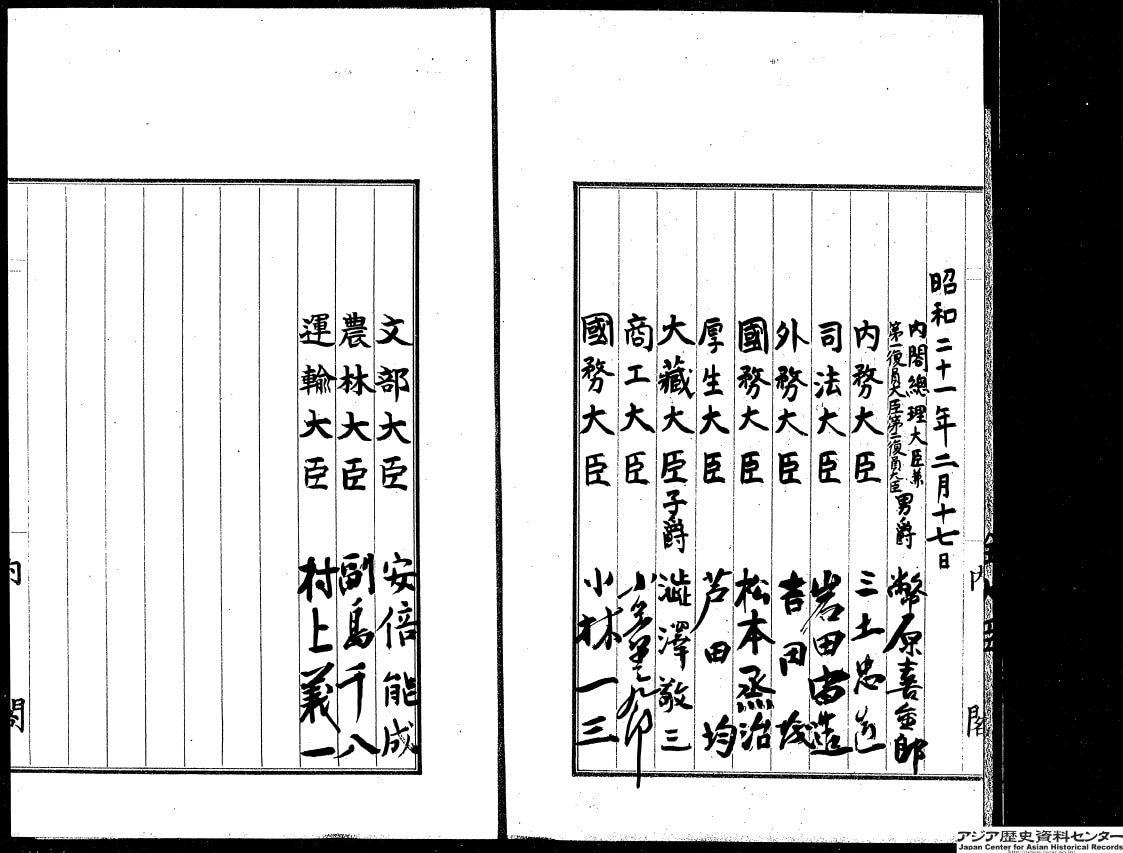 昭和二十一年二月十七日
內閣總理大臣兼
第一復員大臣第二復員大臣
男爵 幣原喜重郎
內務大臣 三土忠造
司法大臣 岩田宙造
外務大臣 吉田茂
國務大臣 松本烝治
厚生大臣 芦田均
大藏大臣子爵 澁澤敬三
商工大臣 小笠原三九郎
國務大臣 小林一三
文部大臣 安倍能成
農林大臣 副島千八
運輸大臣 村上義一
內閣
內閣
アジア歴史資料センター
Japan Center for Asian Historical Records